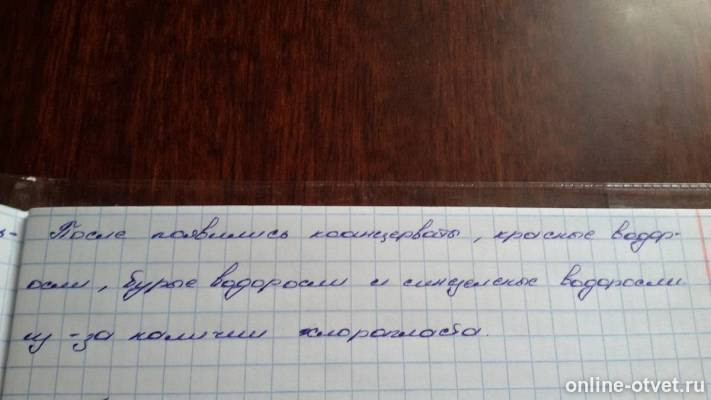 После появились коанцерваты, красные водор-
осли, бурые водоросли и синezеленые водоросли
из-за наличии хлорапласта.
online-otvet.ru